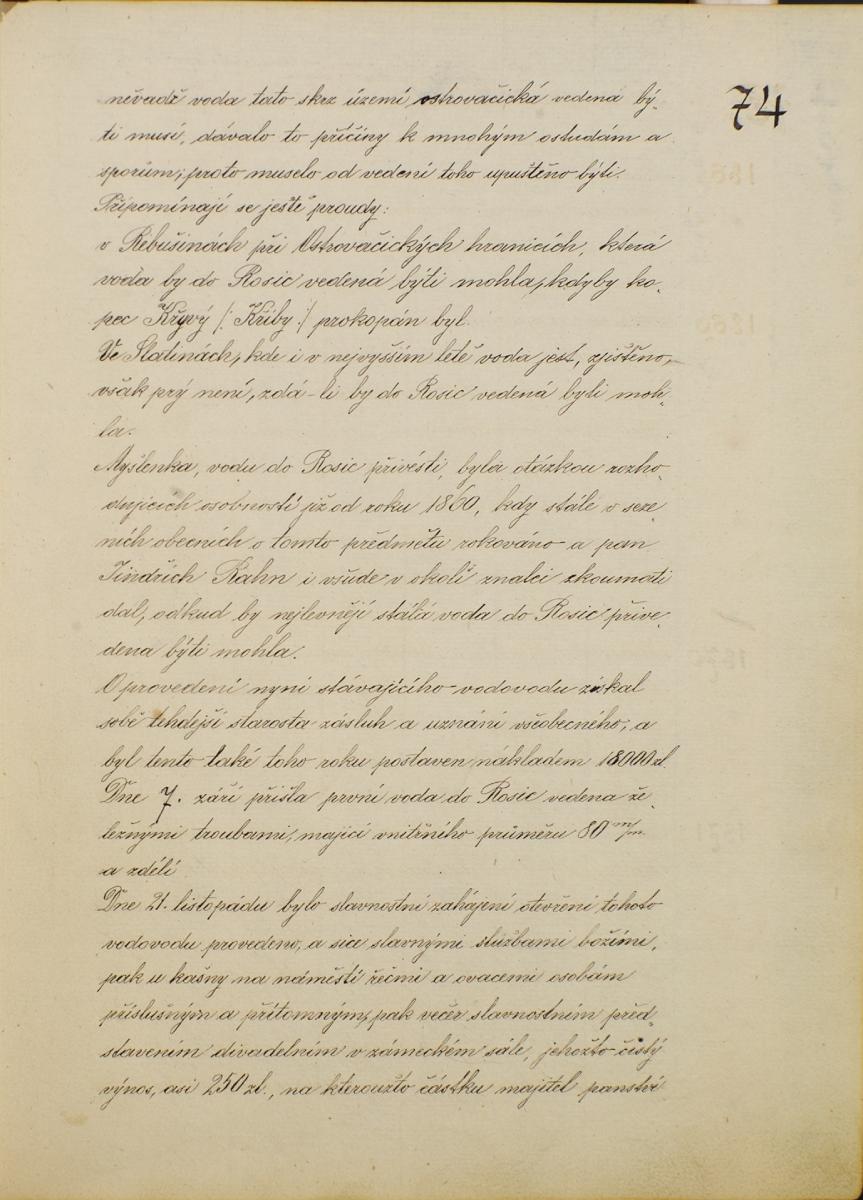 74
nevadě voda tato skrz území ostrovačická vedena bý-
ti musí, dávalo to příčiny k mnohým ostudám a
sporům; proto muselo od vedení toho upuštěno býti.
Připomínají se ještě proudy:
v Řibušinách při Ostrovačických hranicích, která
voda by do Rosic vedená býti mohla, kdyby ko-
pec Křyvý /: Křiby :/ prokopán byl.
Ve Slatinách, kde i v nejvyšším létě voda jest, zjištěno
však prý není, zdá-li by do Rosic vedená byli moh-
la.
Myšlenka, vodu do Rosic přivésti, byla otázkou rozho-
dujících osobností již od roku 1860, kdy stále v seze-
ních obecních o tomto předmětu rokováno a pan
Jindřich Kahn i všude v okolí znalci zkoumati
dal, odkud by nejlevněji stálá voda do Rosic přive-
dena býti mohla.
O provedení nyní stávajícího vodovodu získal
sobě tehdejší starosta zásluh a uznání všeobecného, a
byl tento také toho roku postaven nákladem 18000 zl.
Dne 7. září přišla první voda do Rosic vedena že-
leznými troubami, mající vnitřního průměru 80 m/m
a zdélí
Dne 21. listopádu bylo slavnostní zahájení otevření tohoto
vodovodu provedeno, a sice slavnými službami božími,
pak u kašny na náměstí řečmi a ovacemi osobám
příslušným a přítomným, pak večer slavnostním před-
stavením divadelním v zámeckém sále, jehožto čistý
výnos, asi 250 zl., na kteroužto částku majitel panství